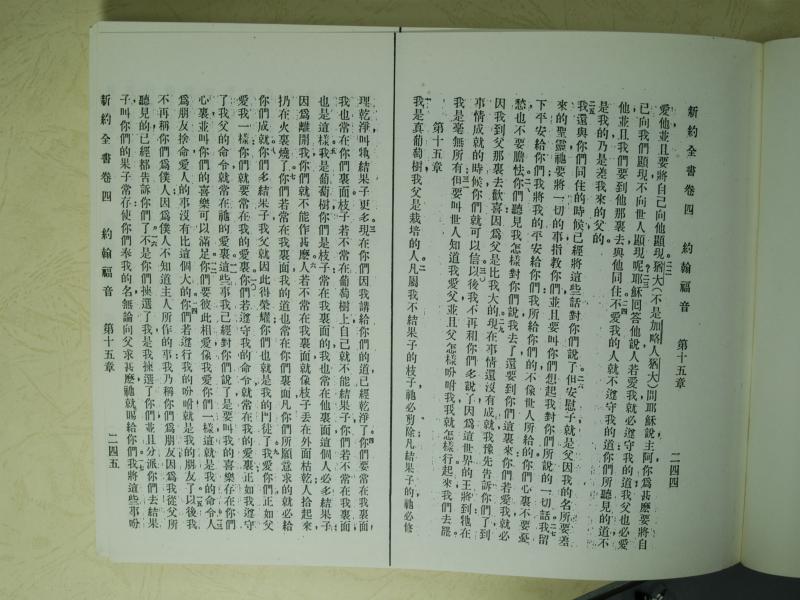 新約全書卷四　約翰福音　第十五章　二四四
愛他並且要將自己向他顯現猶大(不是加略人猶大)問耶穌說主阿你爲甚麽要將自
己向我們顯現不向世人顯現呢耶穌回答他說人若愛我就必遵守我的道我父也必愛
他並且我們要到他那裏去與他同住不愛我的人就不遵守我的道你們所聽見的道不
是我的乃是差我來的父的
我還與你們同住的時候已經將這些話對你們說了但安慰子就是父因我的名所要差
來的聖靈祂要將一切的事指教你們並且要叫你們想起我對你們所說的一切話我留
下平安給你們我將我的平安給你們我所給你們的不像世人所給的你們心裏不要憂
愁也不要膽怯你們聽見我怎樣對你們說我去了還要到你們這裏來你們若愛我就必
因我到父那裏去歡喜因爲父是比我大的現在事情還沒有成就我豫先告訴你們了到
事情成就的時候你們就可以信以後我不再和你們多說了因爲這世界的王將到牠在
我是毫無所有但要叫世人知道我愛父並且父怎樣吩咐我我就怎樣行起來我們去罷
第十五章
我是真葡萄樹我父是栽培的人凡屬我不結果子的枝子祂必剪除凡結果子的祂必修
理乾淨叫牠結果子更多現在你們因我講給你們的道已經乾淨了你們要常在我裏面
我也常在你們裏面枝子若不常在葡萄樹上自己就不能結果子你們若不常在我裏面
也是這樣我是葡萄樹你們是枝子常在我裏面的我也常在他裏面這個人必多結果子
因爲離開我你們就不能作甚麽人若不常在我裏面就像枝子丟在外面枯乾人拾起來
扔在火裏燒了你們若常在我裏面我的道也常在你們裏面凡你們所願意求的就必給
你們成就你們多結果子我父就因此得榮耀你們也就是我的門徒了我愛你們正如父
愛我一樣你們就要常在我的愛裏你們若遵守我的命令就常在我的愛裏正如我遵守
了我父的命令就常在祂的愛裏這些事我已經對你們說了是要叫我的喜樂存在你們
心裏並叫你們的喜樂可以滿足你們要彼此相愛像我愛你們一樣這就是我的命令人
爲朋友捨命愛人的事沒有比這個大的你們若遵行我的吩咐就是我的朋友了以後我
不再稱你們爲僕人因爲僕人不知道主人所作的事我乃稱你們爲朋友因爲我從父所
聽見的已經都告訴你們了不是你們揀選了我是我揀選了你們並且分派你們去結果
子叫你們的果子常存使你們奉我的名無論向父求甚麽祂就賜給你們我將這些事吩
新約全書卷四　約翰福音　第十五章　二四五